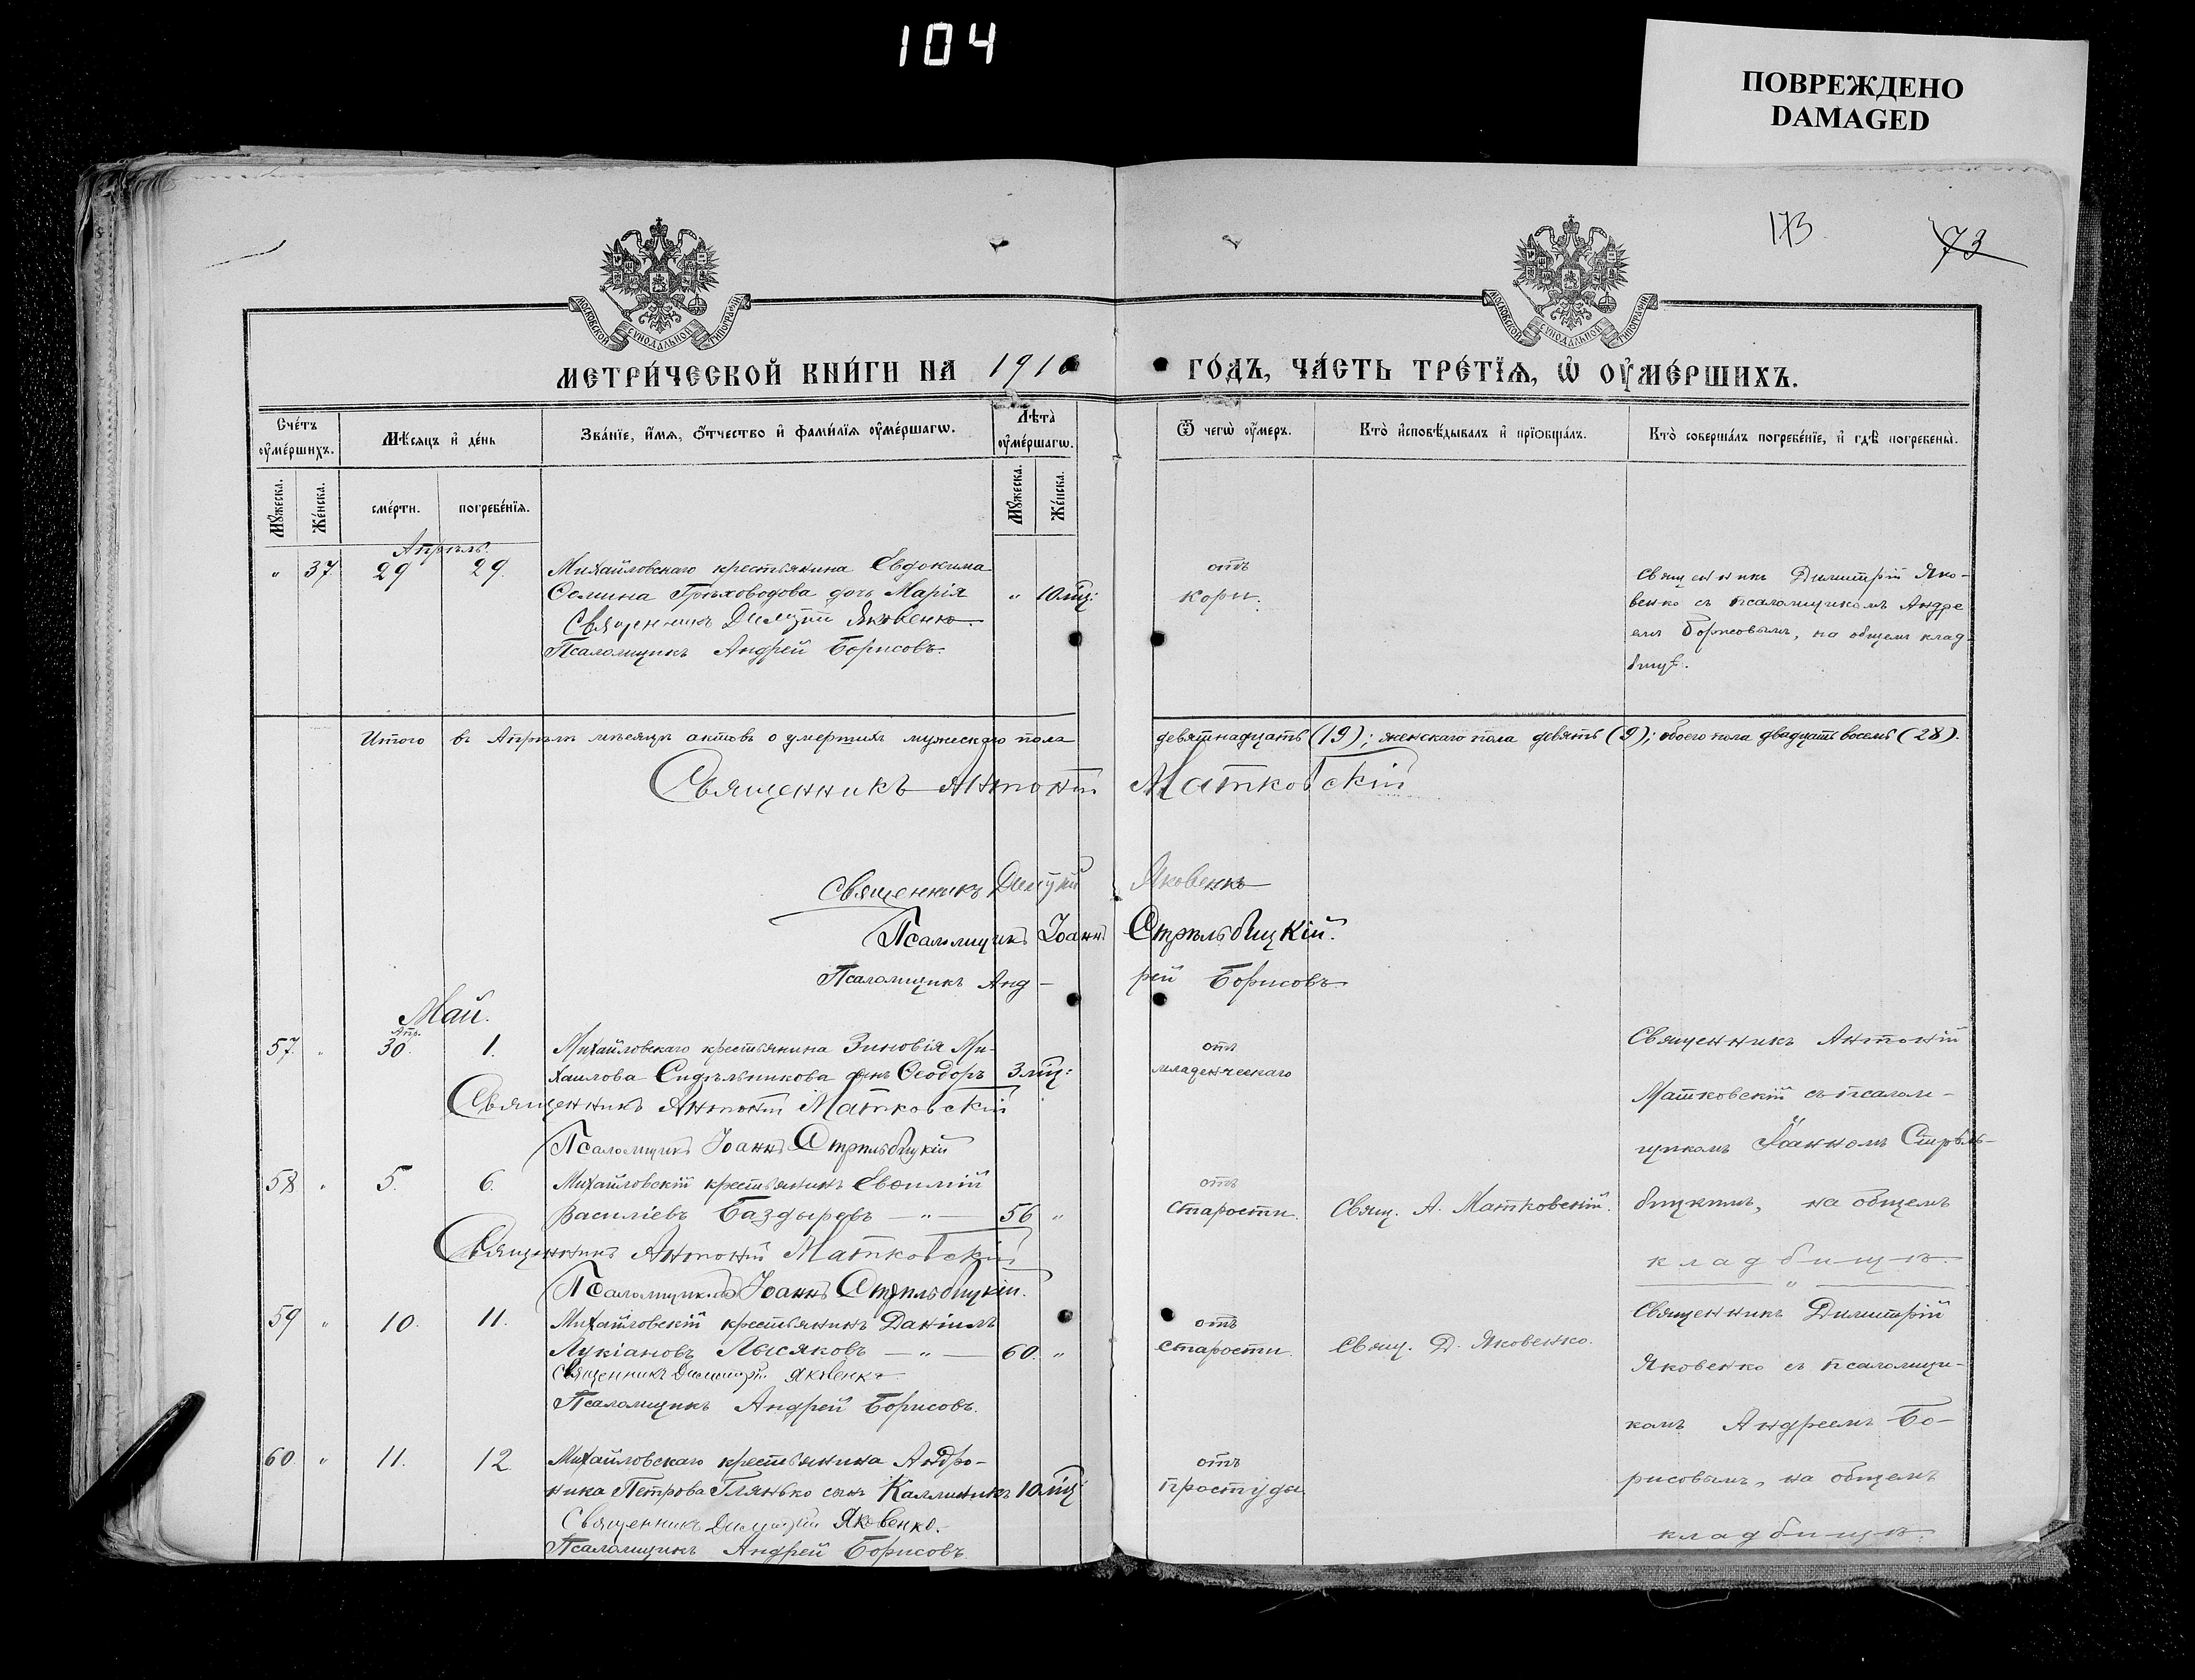 104
ПОВРЕЖДЕНО
DAMAGED
173
73
МОСКОВСКОЙ СУНОДАЛЬНОЙ ТИПОГРАФІИ
МОСКОВСКОЙ СУНОДАЛЬНОЙ ТИПОГРАФІИ
МЕТРИ́ЧЕСКОЙ КНИ́ГИ НА 1910 ГО́ДЪ, ЧА́СТЬ ТРЕ́ТЇѦ, Ѡ҆ ОУ҆МЕ́РШИХЪ.
Сче́тъ оу҆ме́ршихъ.
Мѣ́сяцъ и҆ де́нь
Зва́нїе, и҆́мѧ, ѻ҆́тчество и҆ фами́лїѧ оу҆ме́ршагѡ.
Лѣ́та оу҆ме́ршагѡ.
Ѿ чегѡ̀ оу҆́меръ.
Кто̀ и҆сповѣ́дывалъ и҆ прїѻбща́лъ.
Кто̀ соверша́лъ погребе́нїе, и҆ гдѣ̀ погребены̀.
Мꙋ́жеска.
Же́нска.
сме́рти.
погребе́нїя.
Мꙋ́жеска.
Же́нска.
Апрѣль.
" 37. 29 29. Михайловскаго крестьянина Евдокима
Ѳомина Грѣховодова дочь Марія " 10 мц:
Священникъ Димитрій Яковенко.
Псаломщикъ Андрей Борисовъ.
отъ
кори.
Священникъ Димитрій Яко-
венко съ псаломщикомъ Андре
емъ Борисовымъ, на общемъ клад-
бищѣ.
Итого въ Апрѣлѣ мѣсяцѣ актовъ о умершихъ мужескаго пола девятнадцать (19); женскаго пола девять (9); обоего пола двадцать восемь (28).
Священникъ Антоній Матковскій
Священникъ Димитрій Яковенко
Псаломщикъ Іоаннъ Стрѣльбицкій.
Псаломщикъ Анд- рей Борисовъ.
Май.
Апр.
57. " 30. 1. Михайловскаго крестьянина Зиновія Ми-
хаилова Сидѣльникова сынъ Ѳеодоръ 3 мц:
Священникъ Антоній Матковскій
Псаломщикъ Іоаннъ Стрѣльбицкій
отъ
младенческаго
Священникъ Антоній
Матковскій съ псалом-
щикомъ Іоанномъ Стрѣль-
бицкимъ, на общемъ
кладбищѣ.
58 " 5. 6. Михайловскій крестьянинъ Евѳимій
Василіевъ Баздыревъ — " — 56 "
Священникъ Антоній Матковскій
Псаломщикъ Іоаннъ Стрѣльбицкій.
отъ
старости.
Свящ. А. Матковскій.
59 " 10. 11. Михайловскій крестьянинъ Даніилъ
Лукіановъ Лысяковъ — " — 60. "
Священникъ Димитрій Яковенко
Псаломщикъ Андрей Борисовъ.
отъ
старости.
Свящ. Д. Яковенко.
Священникъ Димитрій
Яковенко съ псаломщи-
комъ Андреемъ Бо-
рисовымъ, на общемъ
кладбищѣ.
60 " 11. 12 Михайловскаго крестьянина Андро-
ника Петрова Глянько сынъ Каллиникъ 10 мц
Священникъ Димитрій Яковенко.
Псаломщикъ Андрей Борисовъ.
отъ
простуды